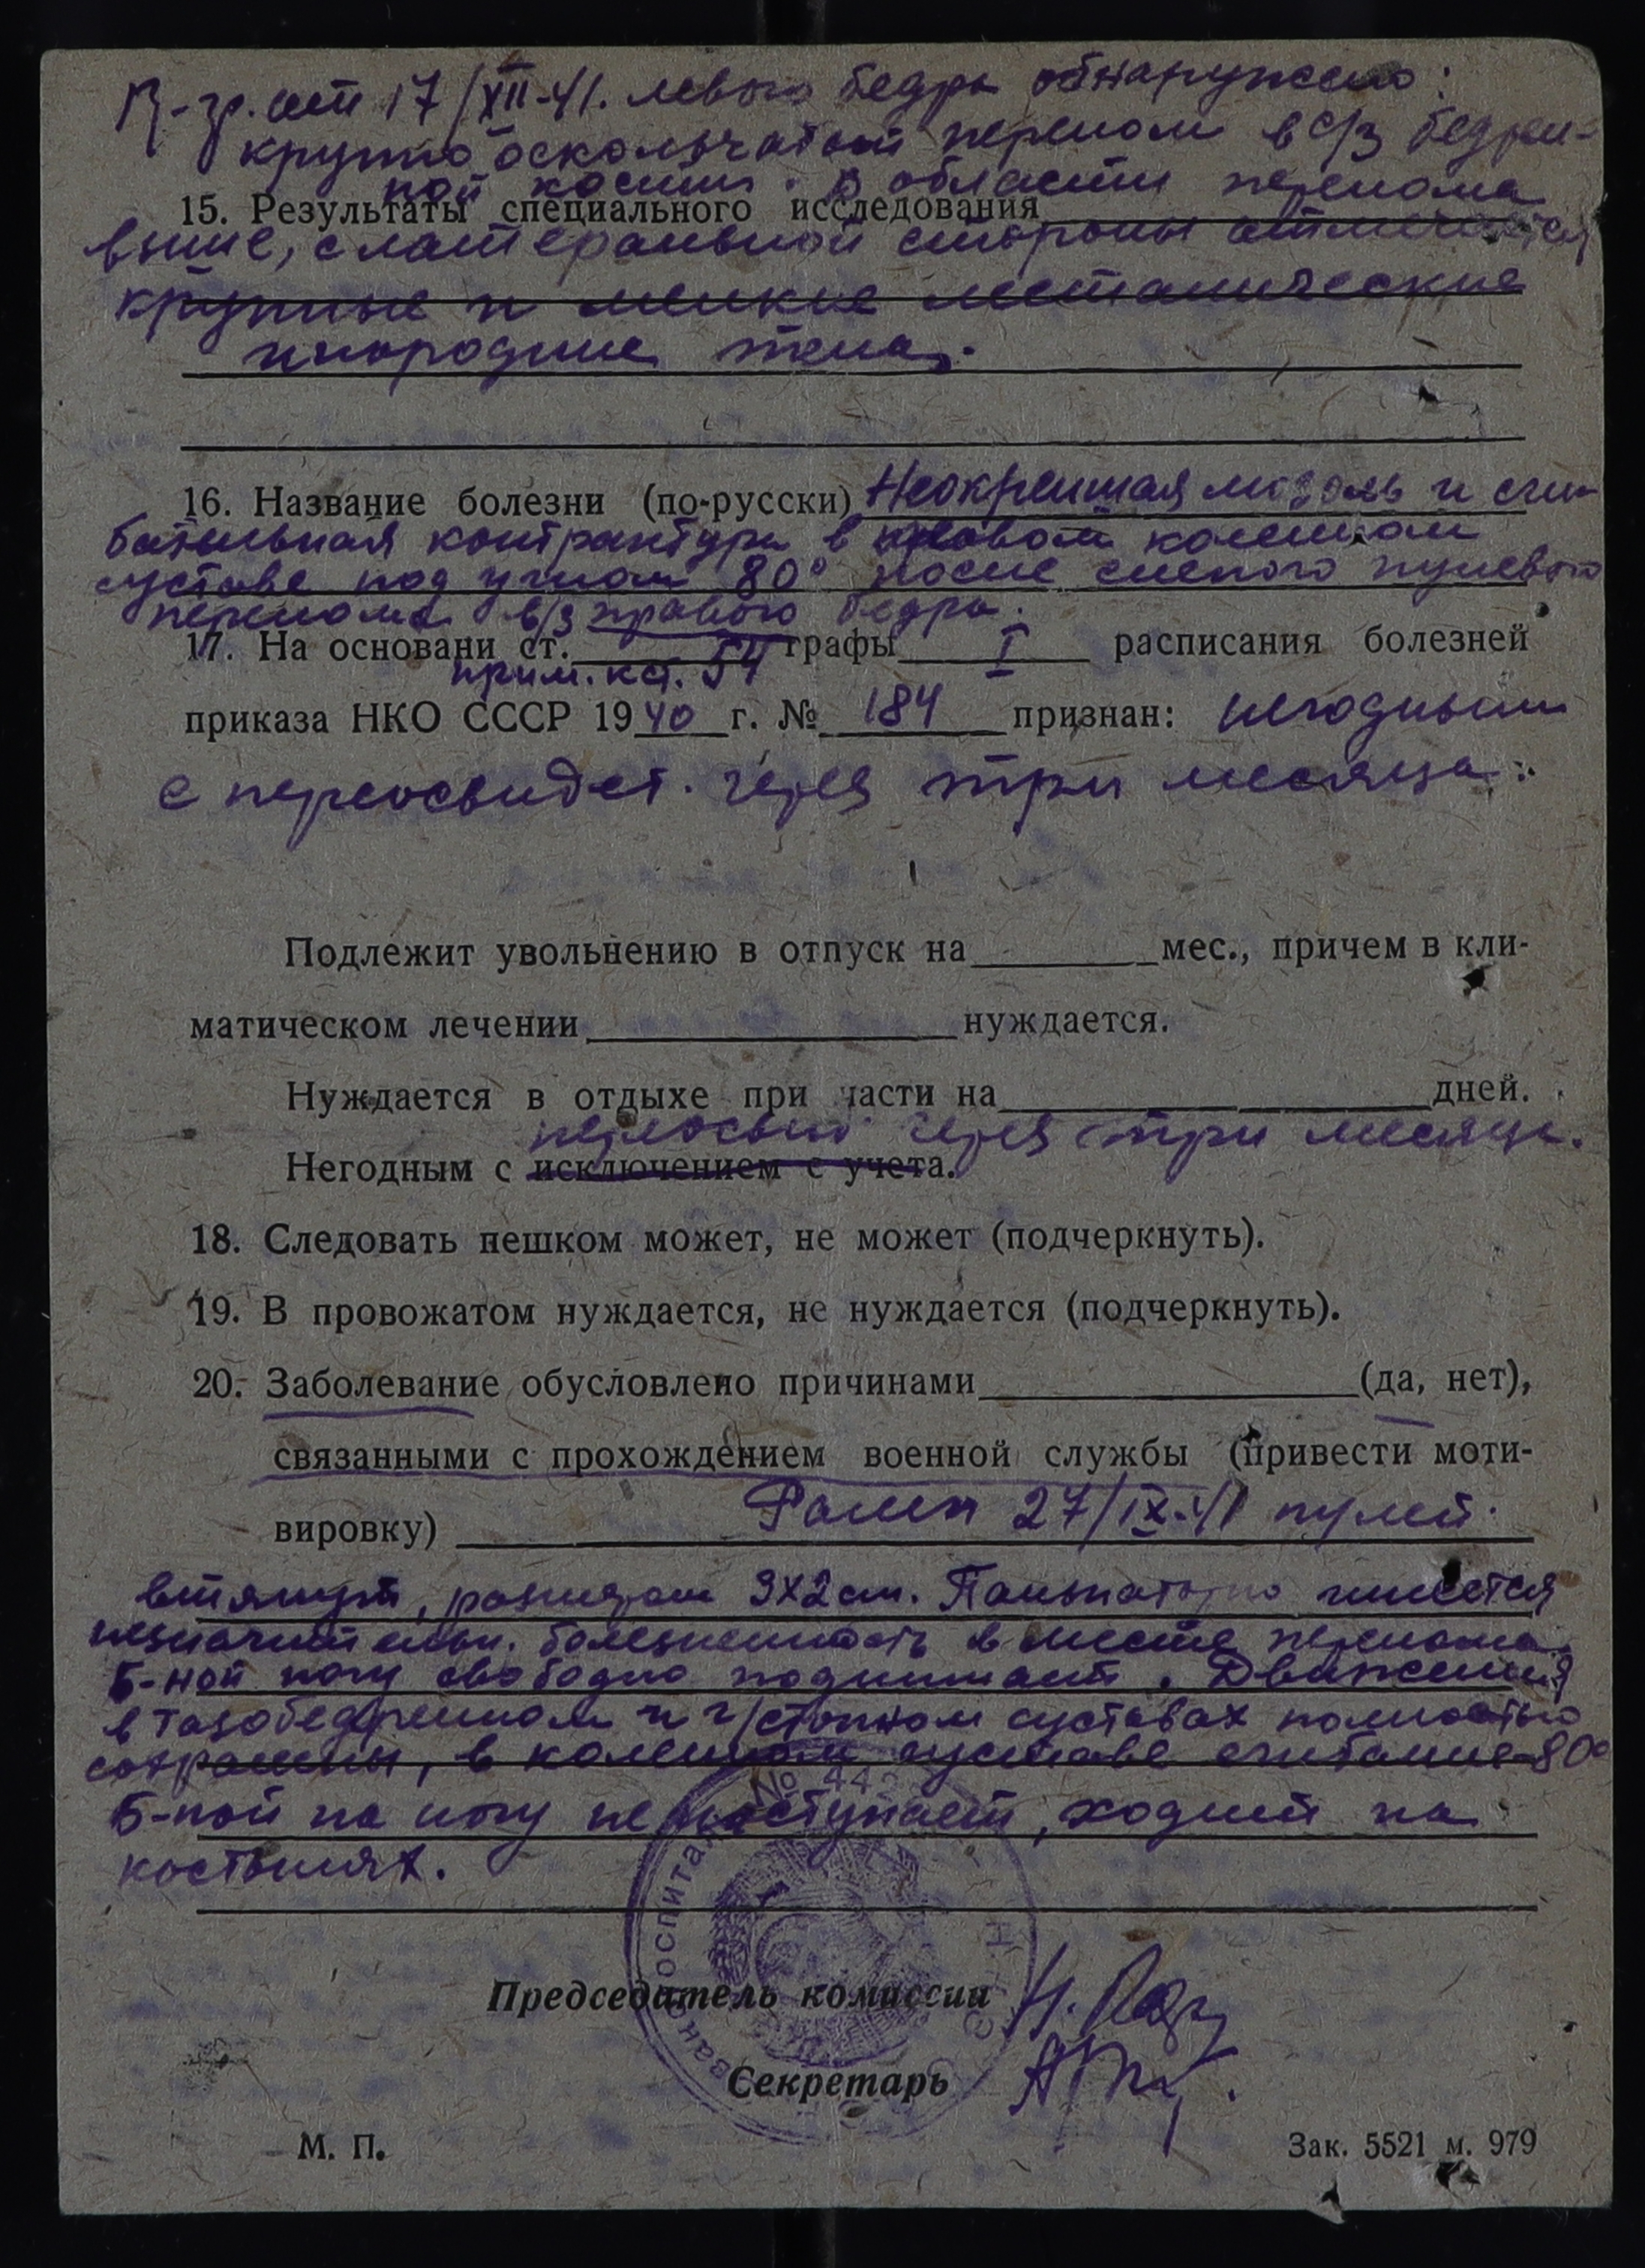 R-гр. от 17/XII-41. левого бедра обнаружено:
крупно оскольчатый перелом в с/з бедрен-
ной кости. В области перелома
15. Результаты специального исследования
выше, с латеральной стороны отмечается
крупные и мелкие металлические
инородные тела.
16. Название болезни (по-русски) Неокрепшая мозоль и сги-
бательная контрактура в коленном
суставе под углом 80° после слепого пулевого
перелома в/з правого бедра.
17. На основани ст. графы I расписания болезней
прим. к ст. 54
приказа НКО СССР 1940 г. № 184 признан: негодным
с переосвидет. через три месяца.
Подлежит увольнению в отпуск на мес., причем в кли-
матическом лечении нуждается.
Нуждается в отдыхе при части на дней.
переосвид через три месяца.
Негодным с исключением с учета.
18. Следовать пешком может, не может (подчеркнуть).
19. В провожатом нуждается, не нуждается (подчеркнуть).
20. Заболевание обусловлено причинами (да, нет),
связанными с прохождением военной службы (привести моти-
вировку) Ранен 27/IX-41 пулей.
втянут, размером 3х2 см. Пальпаторно имеется
незначительн. болезненность в месте перелома.
Б-ной ногу свободно поднимает. Движения
в тазобедренном и г/стопном суставах полностью
сохранены, в коленном суставе сгибание 80°
Б-ной на ногу не наступает, ходит на
костылях.
Председатель комиссии
Секретарь
М. П.
Зак. 5521 м. 979